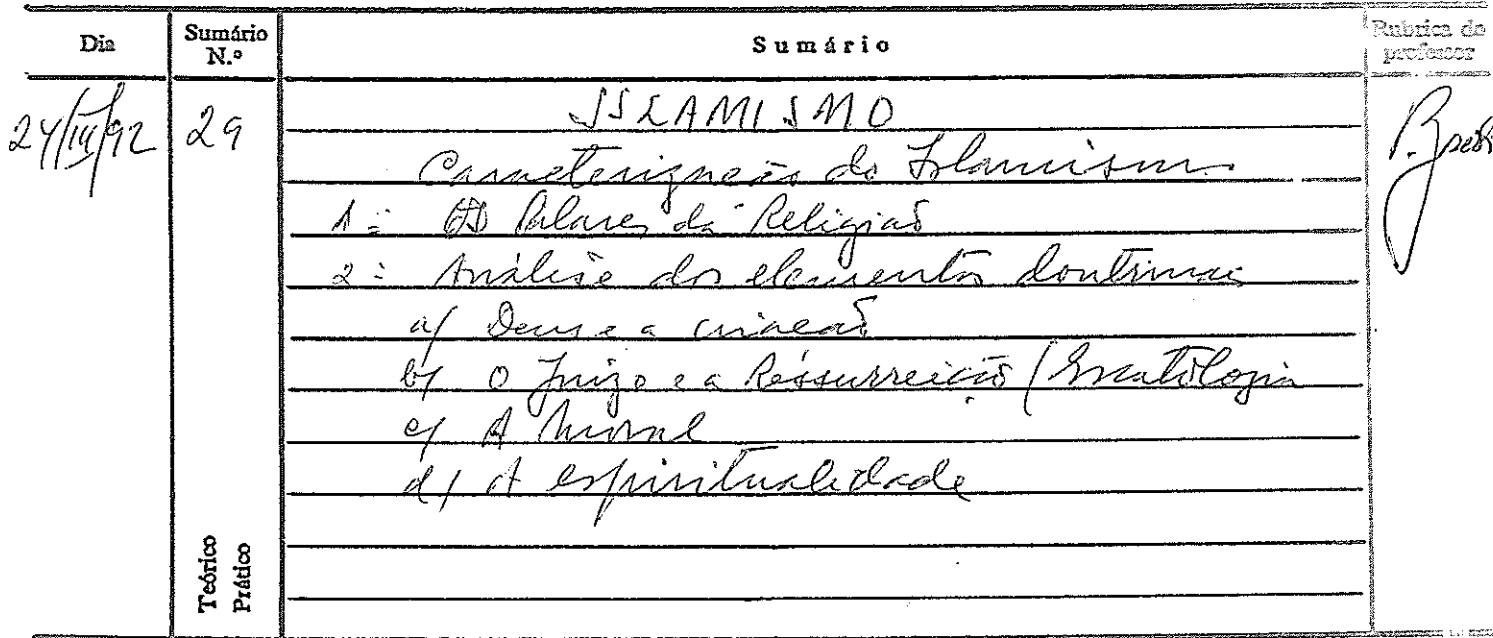 Dia
Sumário N.º
Sumário
Rubrica do professor
24/III/92
29
ISLAMISMO
Caracterização do Islamismo
1º Os Pilares da Religião
2º Análise dos elementos doutrinais
a/ Deus e a criação
b/ O Juízo e a Ressurreição / Escatologia
c/ A Moral
d/ A espiritualidade
Teórico
Prático